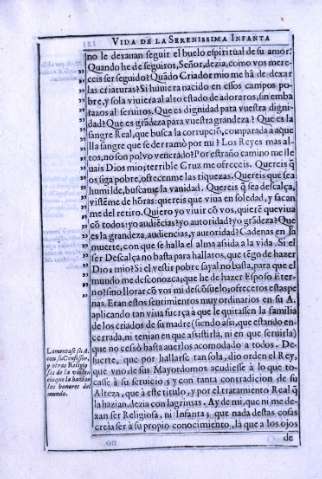 VIDA DE LA SERENISSIMA INFANTA
no le dexauan seguir el buelo espiritual de su amor.
Quando he de seguiros, Señor, dezia, como vos mere-
ceis ser seguido? Quãdo Criador mio me hã de dexar
las criaturas? Si huuiera nacido en essos campos po-
bre, y sola viuiera al alto estado de adoraros, sin emba
raços al seruiros. Que es dignidad para vuestra digni-
dad? Que es grãdeza para vuestra grandeza? Que es la
sangre Real, que busca la corrupciõ, comparada a aque
lla sangre que se derramò por mi? Los Reyes mas al-
tos, no son polvo venerado? Por estraño camino me lle
uais Dios mio, terrible Cruz me ofreceis. Quereis q̃
os siga pobre, ofreceisme las riquezas. Quereis que sea
humilde, buscame la vanidad. Quereis q̃ sea descalça,
vistẽme de hõras: quereis que viua en soledad, y sacan
me del retiro. Quiero yo viuir cõ vos, quierẽ que viua
cõ todos: yo audiẽcias? yo autoridad? yo grãdeza? Que
es la grandeza, audiencias, y autoridad? Cadenas en la
muerte, con que se halla el alma asida a la vida. Si el
ser Descalça no basta para hallaros, que tẽgo de hazer
Dios mio? Si el vestir pobre sayal no basta, para que el
mundo me desconozca, que he de hazer Esposo Eter-
no? sino llorar cõ vos mi desconsuelo, ofreceros estas pe
nas. Eran estos sentimientos muy ordinarios en su A.
aplicando tan viua fuerça a que le quitassen la familia
de los criados de su madre (siendo assi, que estando en-
cerrada, ni tenian en que assistirla, ni en que seruirla)
que no cessò hasta auerlos acomodado a todos. De
suerte, que por hallarse tan sola, dio orden el Rey,
que vno de sus Mayordomos acudiesse à lo que to-
casse à su seruicio, y con tanta contradicion de su
Alteza, que à este titulo, y por el tratamiento Real q̃
la hazian, dezia con lagrimas. Ay de mi, que ni me de-
xan ser Religiosa, ni Infanta, que nada destas cosas
creia ser à su propio conocimiento, la que a los ojos
de
Lamentase su A.
con su Confessor,
y otras Religio
sas de la violen
cia que la hazian
los honores del
mundo.